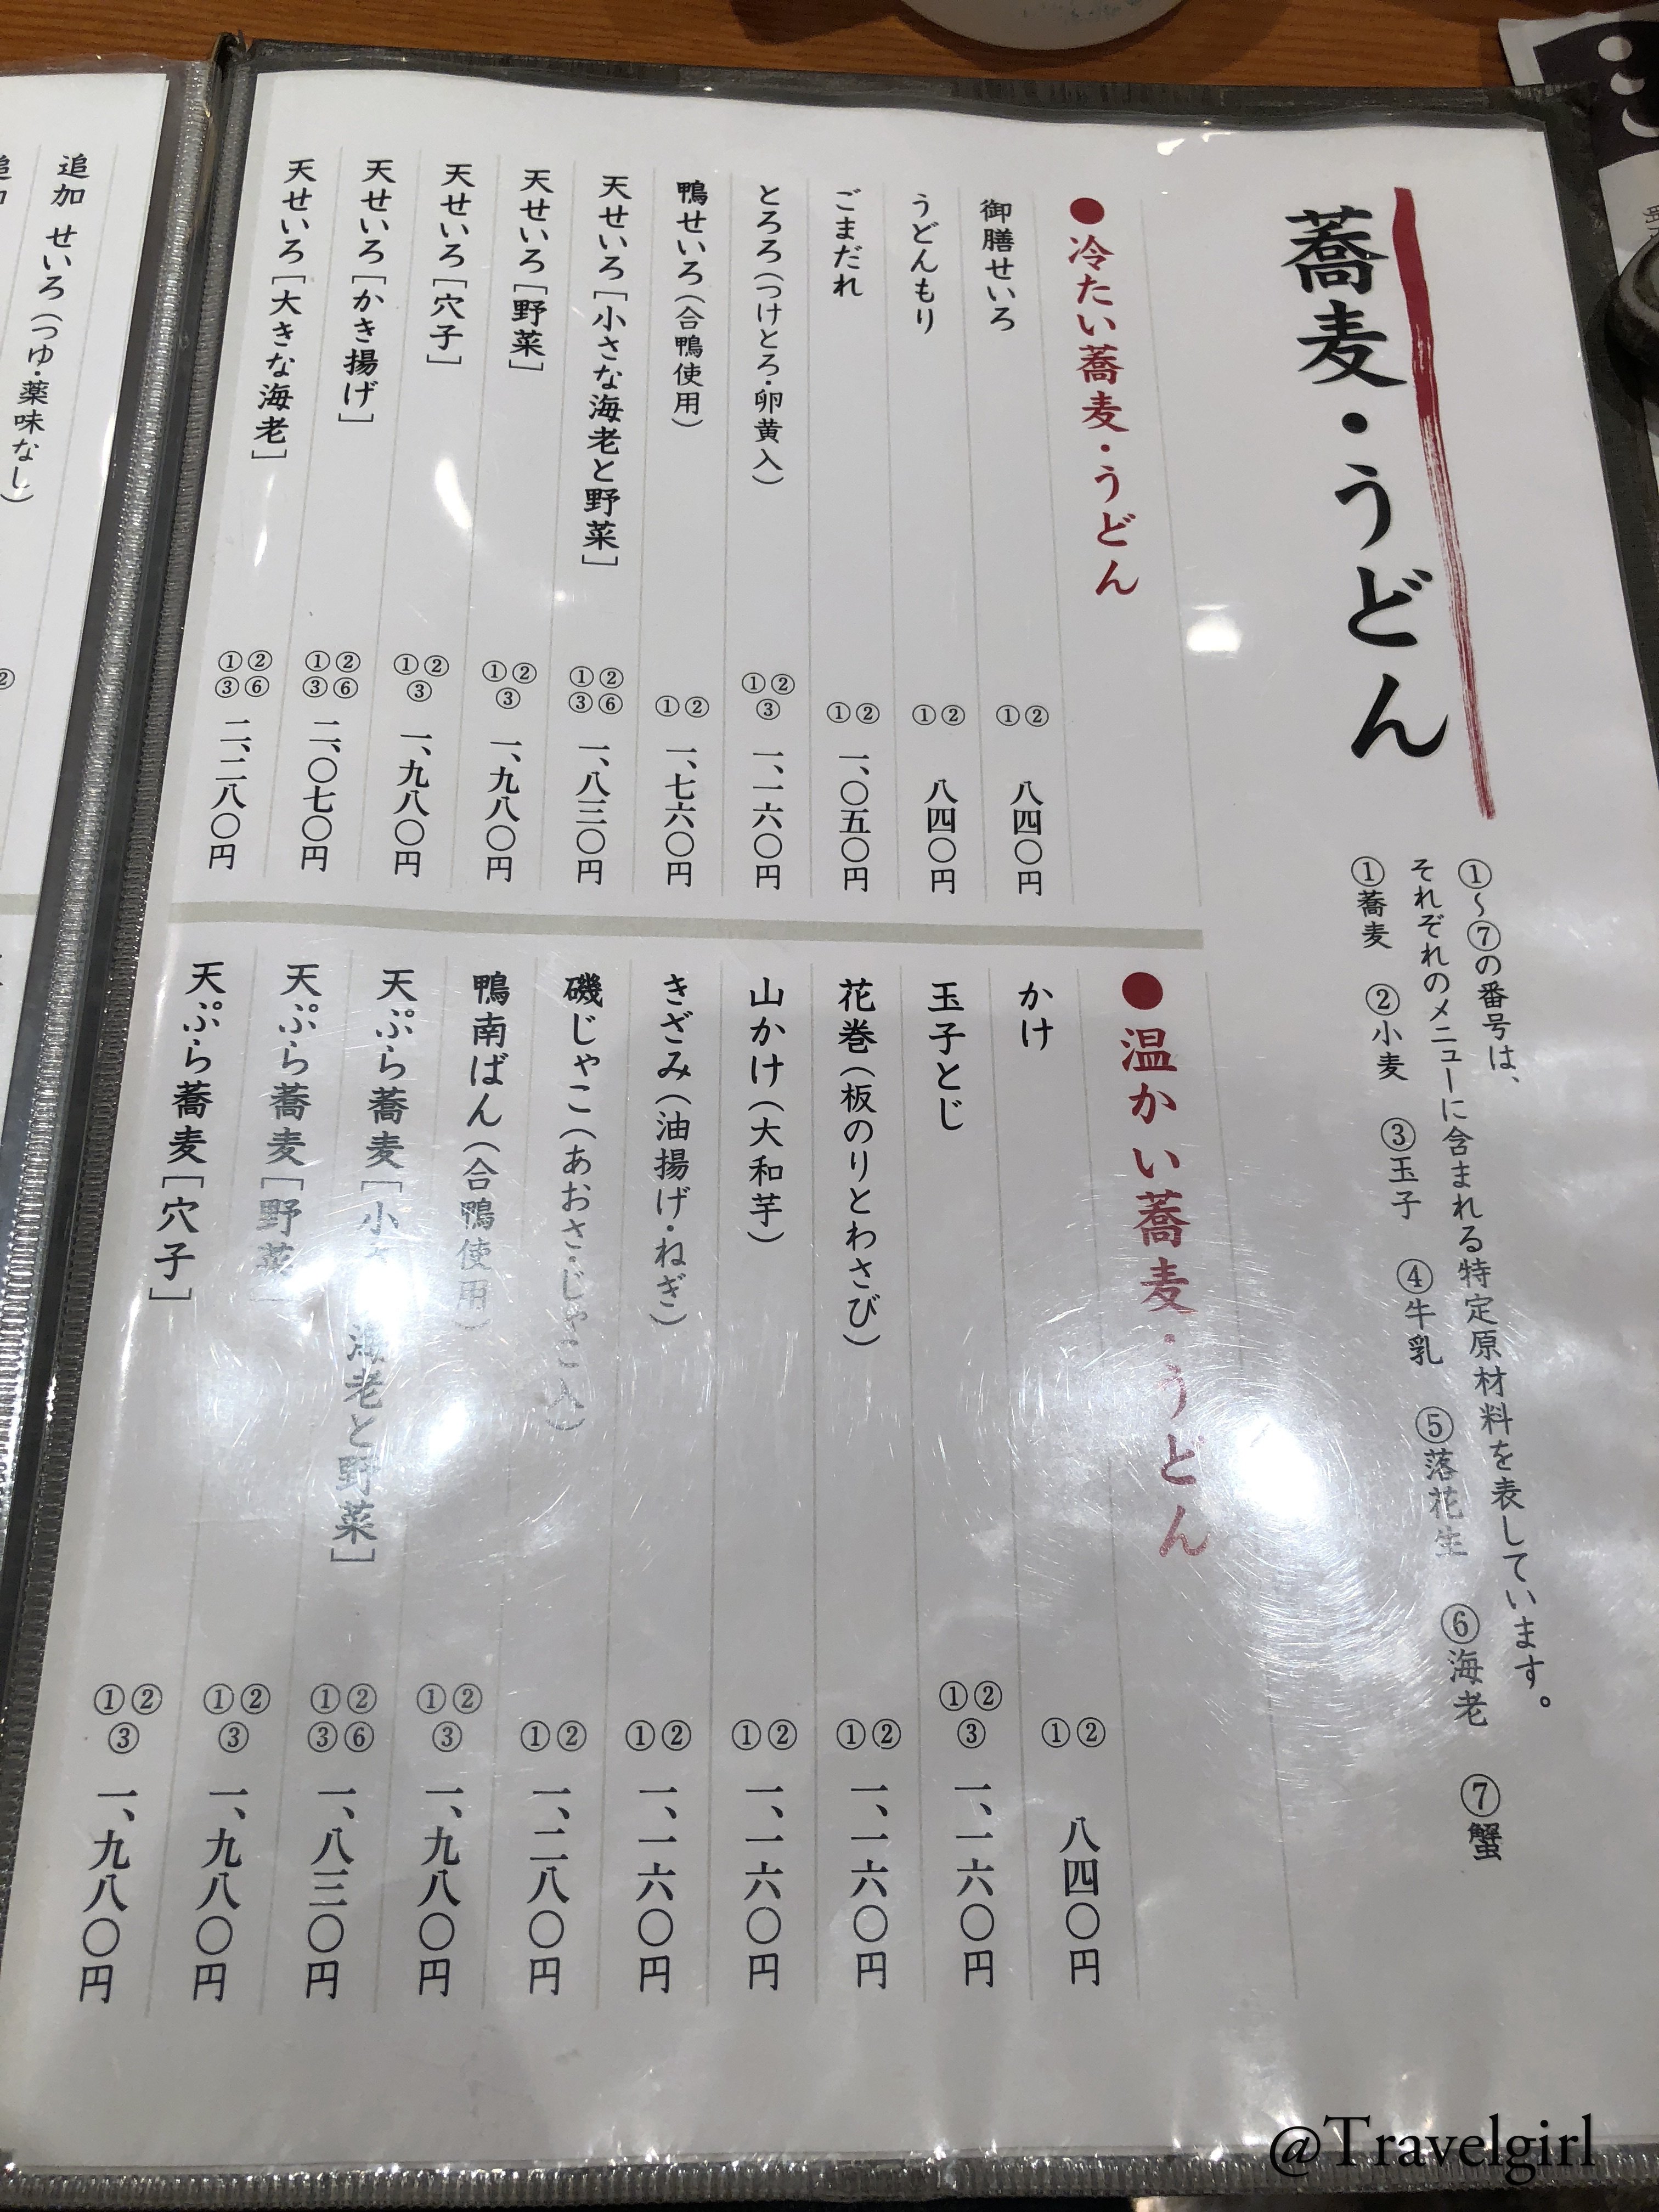 蕎麦・うどん
①～⑦の番号は、
それぞれのメニューに含まれる特定原材料を表しています。
①蕎麦 ②小麦 ③玉子 ④牛乳 ⑤落花生 ⑥海老 ⑦蟹
●冷たい蕎麦・うどん
御膳せいろ ①② 八四〇円
うどんもり ①② 八四〇円
ごまだれ ①② 一、〇五〇円
とろろ（つけとろ・卵黄入） ①②③ 一、一六〇円
鴨せいろ（合鴨使用） ①② 一、七六〇円
天せいろ［小さな海老と野菜］ ①②③⑥ 一、八三〇円
天せいろ［野菜］ ①②③ 一、九八〇円
天せいろ［穴子］ ①②③ 一、九八〇円
天せいろ［かき揚げ］ ①②③⑥ 二、〇七〇円
天せいろ［大きな海老］ ①②③⑥ 二、二八〇円
●温かい蕎麦・うどん
かけ ①② 八四〇円
玉子とじ ①②③ 一、一六〇円
花巻（板のりとわさび） ①② 一、一六〇円
山かけ（大和芋） ①② 一、一六〇円
きざみ（油揚げ・ねぎ） ①② 一、一六〇円
磯じゃこ（あおさ・じゃこ入） ①② 一、二八〇円
鴨南ばん（合鴨使用） ①②③ 一、九八〇円
天ぷら蕎麦［小 海老と野菜］ ①②③⑥ 一、八三〇円
天ぷら蕎麦［野菜］ ①②③ 一、九八〇円
天ぷら蕎麦［穴子］ ①②③ 一、九八〇円
追加 せいろ（つゆ・薬味なし）
追加
@Travelgirl